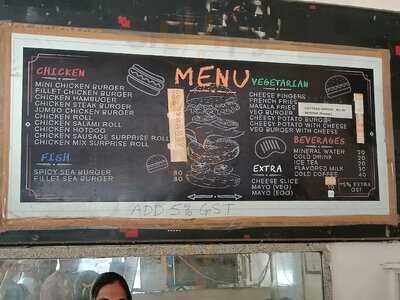 MENU
CHICKEN
MINI CHICKEN BURGER
FILLET CHICKEN BURGER
CHICKEN HAMBUGER
CHICKEN STEAK BURGER
JUMBO CHICKEN BURGER
CHICKEN ROLL
CHICKEN SALAMI ROLL
CHICKEN HOTDOG
CHICKEN SAUSAGE SURPRISE ROLL
CHICKEN MIX SURPRISE ROLL
FISH
SPICY SEA BURGER 80
FILLET SEA BURGER 80
VEGETARIAN
CHEESE FINGERS
FRENCH FRIES
MASALA FRIES
VEG BURGER
CHEESY POTATO BURGER
CHEESY POTATO WITH CHEESE
VEG BURGER WITH CHEESE
BEVERAGES
MINERAL WATER 20
COLD DRINK 20
ICE TEA 20
FLAVORED MILK 30
COLD COFFEE 40
EXTRA
CHEESE SLICE
MAYO (VEG)
MAYO (EGG)
*5% EXTRA
GST
ADD 5% GST